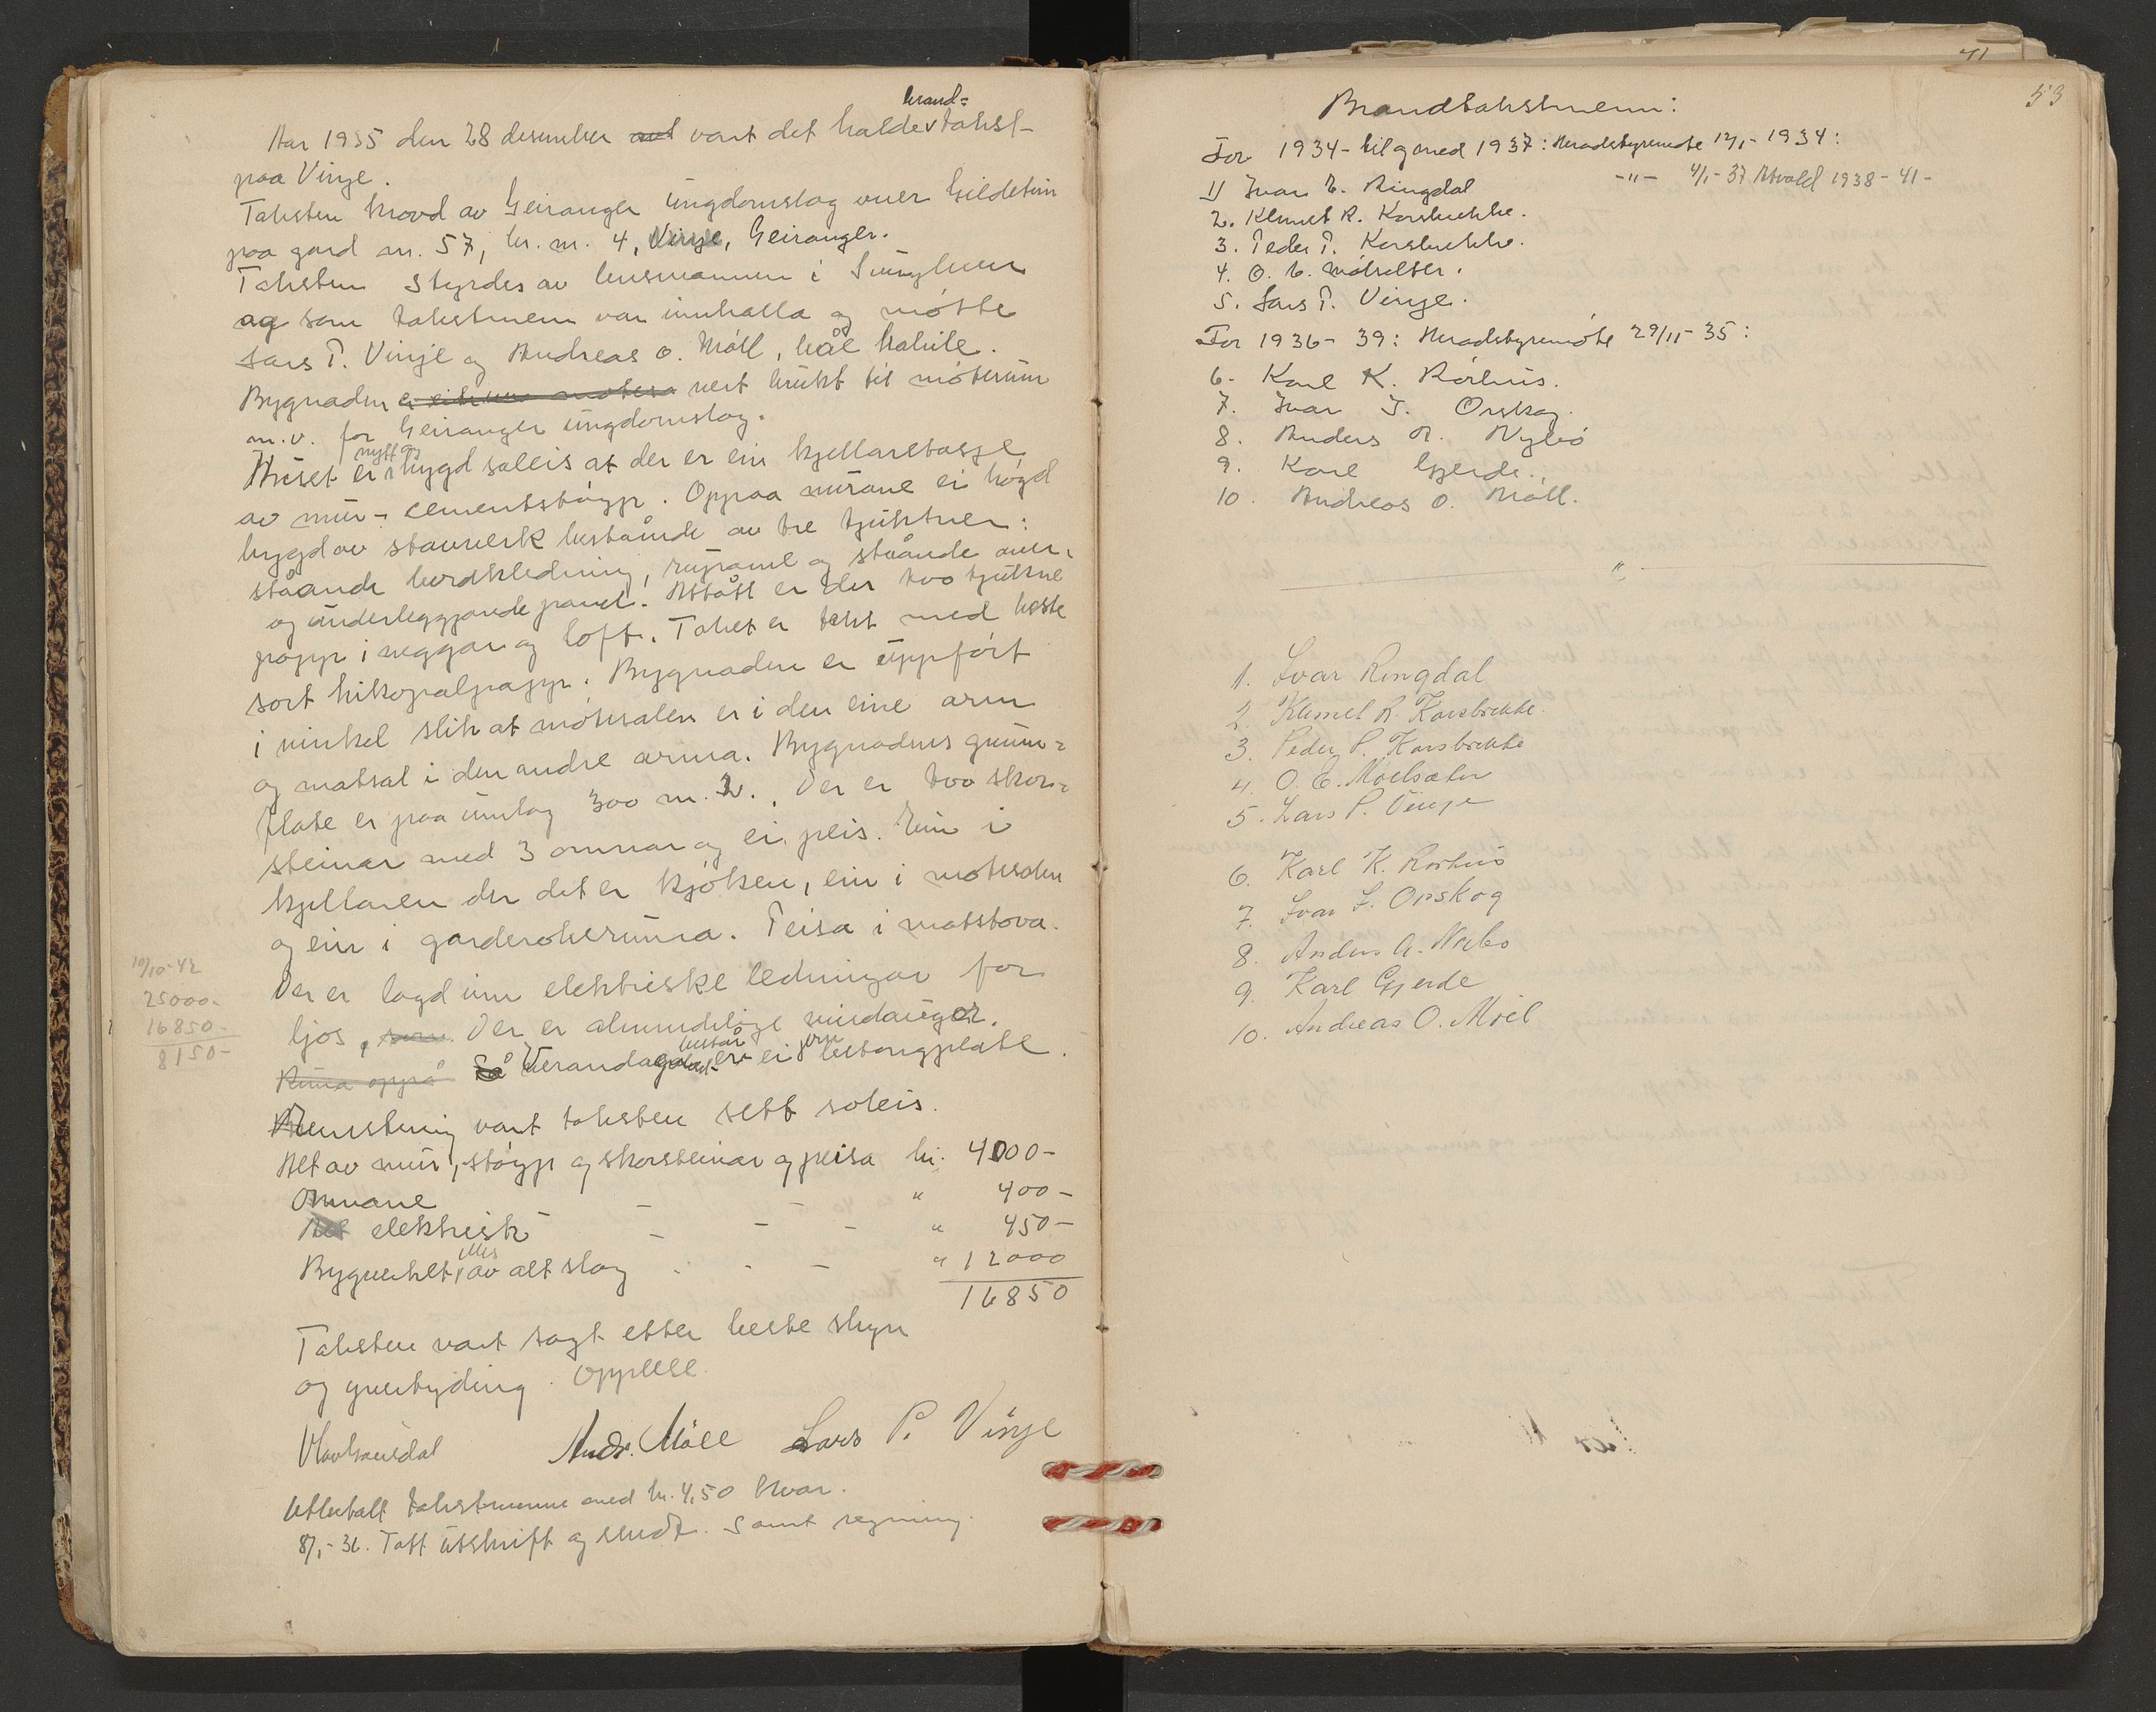 brand=
Aar 1935 den 28 desember vart det halde takst
paa Vinje.
Taksten krovd av Geiranger ungdomslag over Gildetun
paa gard nr. 57, br. nr. 4, Vinje, Geiranger.
Taksten styrdes av lensmannen i Sunnylven
og som takstmenn var innkalla og møtte
Lars P. Vinje og Andreas O. Möll, båe habile.
Bygnaden vert brukt til møterum
m.v. for Geiranger ungdomslag.
nytt og
Huset er bygd soleis at der er ein kjellaretasje
av mur- cementstøyp. Oppaa murane ei høgd
bygd av stavverk bestående av tre tjukner:
ståande bordkledning, rupanel og ståande over-
og underleggjande panel. Attått er der tvo tjukne
papp i veggar og loft. Taket er tekt med beste
sort kikopalpapp. Bygnaden er uppført
i vinkel slik at møtesalen er i den eine arm
og matsal i den andre arma. Bygnadens grunn=
flate er paa umlag 300 m.2. Der er tvo skor=
steinar med 3 omnar og ei peis. Ein i
kjellaren der det er kjøken, ein i møtesalen
og ein i garderoberumma. Peisa i matstova.
Der er lagd inn elektriske ledningar for
ljos, Der er almindelige vindauger.
består jern
Verandagolvet ei betongplate.
vart taksten sett soleis.
Alt av mur, støyp og skorsteinar og peisa kr. 4000-
Omnane - - " 400-
elektrisk - - - " 450-
elles
Bygverket av alt slag - - - " 12000
16850
Taksten vart sagt etter beste skyn
og yvertyding. Opplese.
Andr. Möll Lars P. Vinje
Utbetalt takstmenne med kr. 4,50 kvar.
8/1-36. Tatt utskrift og sendt. Samt regning.
10/10-42
25000-
16850-
8150-
41
53
Brandtakstmenn:
For 1934- til og med 1937: Heradstyremøte 12/1-1934:
-"- 4/1-37 Attvald 1938-41-
1) Ivar E. Ringdal
2. Klemet R. Korsbrekke.
3. Peder P. Korsbrekke.
4. O. E. Möelsæter.
5. Lars P. Vinje.
For 1936-39: Heradstyremøte 29/11-35:
6- Karl K. Rørhus.
7. Ivar I. Orskog.
8. Anders A. Nybø
9. Karl Gjerde.
10. Andreas O. Möll.
"
1. Ivar Ringdal
2. Klemet R. Korsbrekke.
3. Peder P. Korsbrekke
4. O. E. Möelsæter
5. Lars P. Vinje
6. Karl K. Rørhus
7. Ivar I. Orskog
8. Anders A. Nybø
9. Karl Gjerde
10. Andreas O. Möll